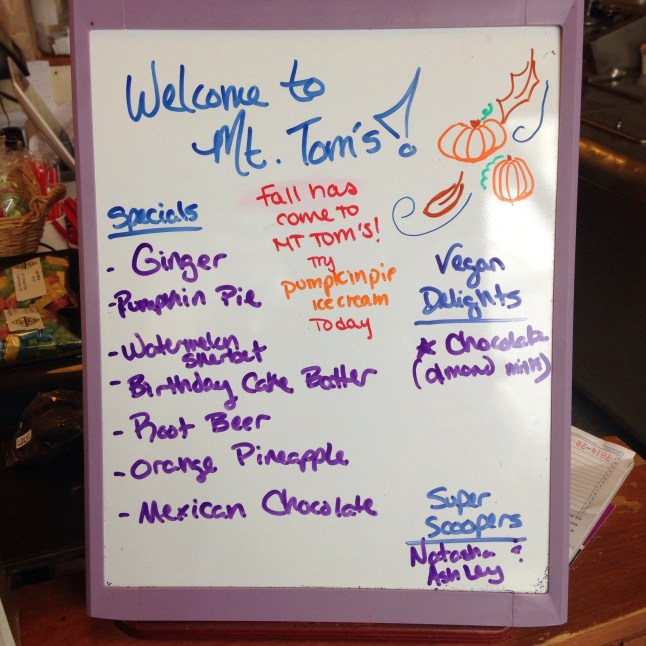 Welcome to
Mt. Tom's!
Fall has
come to
MT TOM'S!
Try
pumpkin pie
ice cream
Today
Specials
- Ginger
- Pumpkin Pie
- Watermelon
Sherbet
- Birthday Cake Batter
- Root Beer
- Orange Pineapple
- Mexican Chocolate
Vegan
Delights
* Chocolate
(almond milk)
Super
Scoopers
Natasha &
Ashley